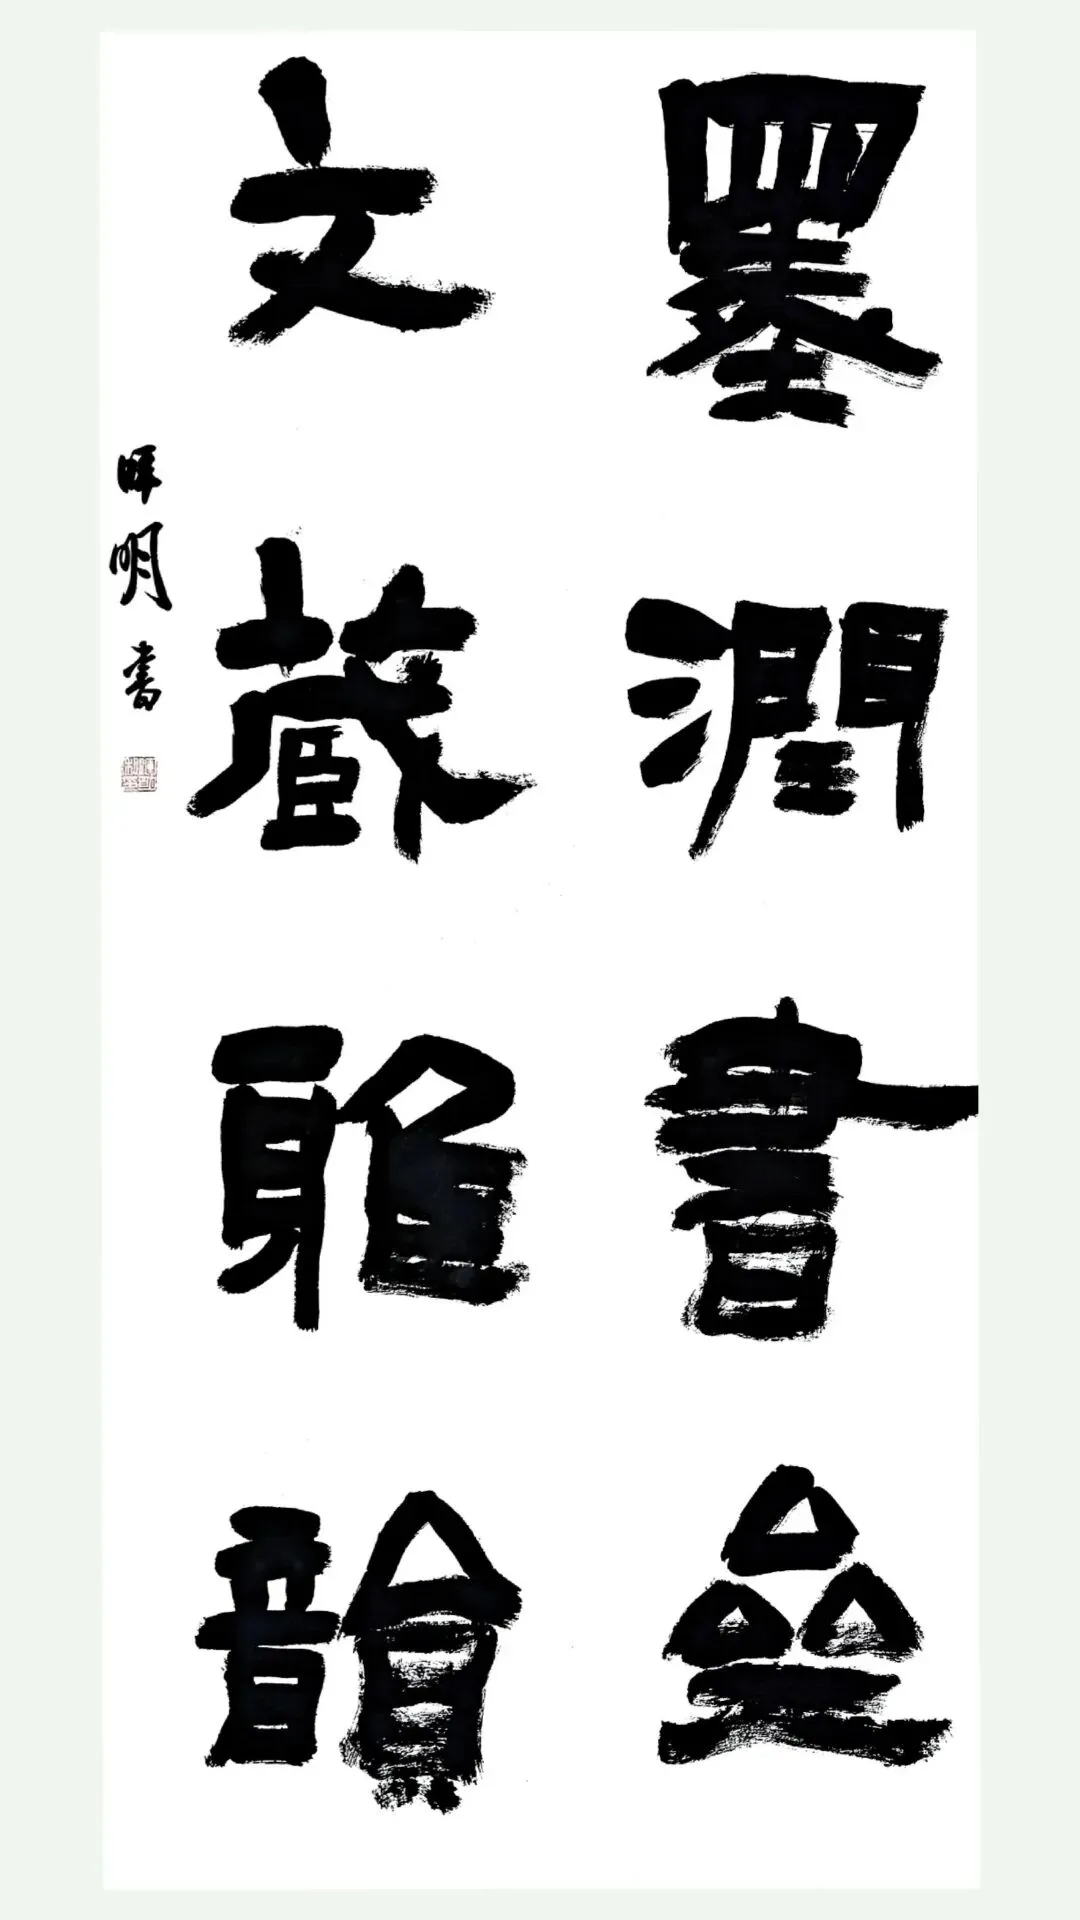 墨潤書垒
文藏雅韻
晖明書